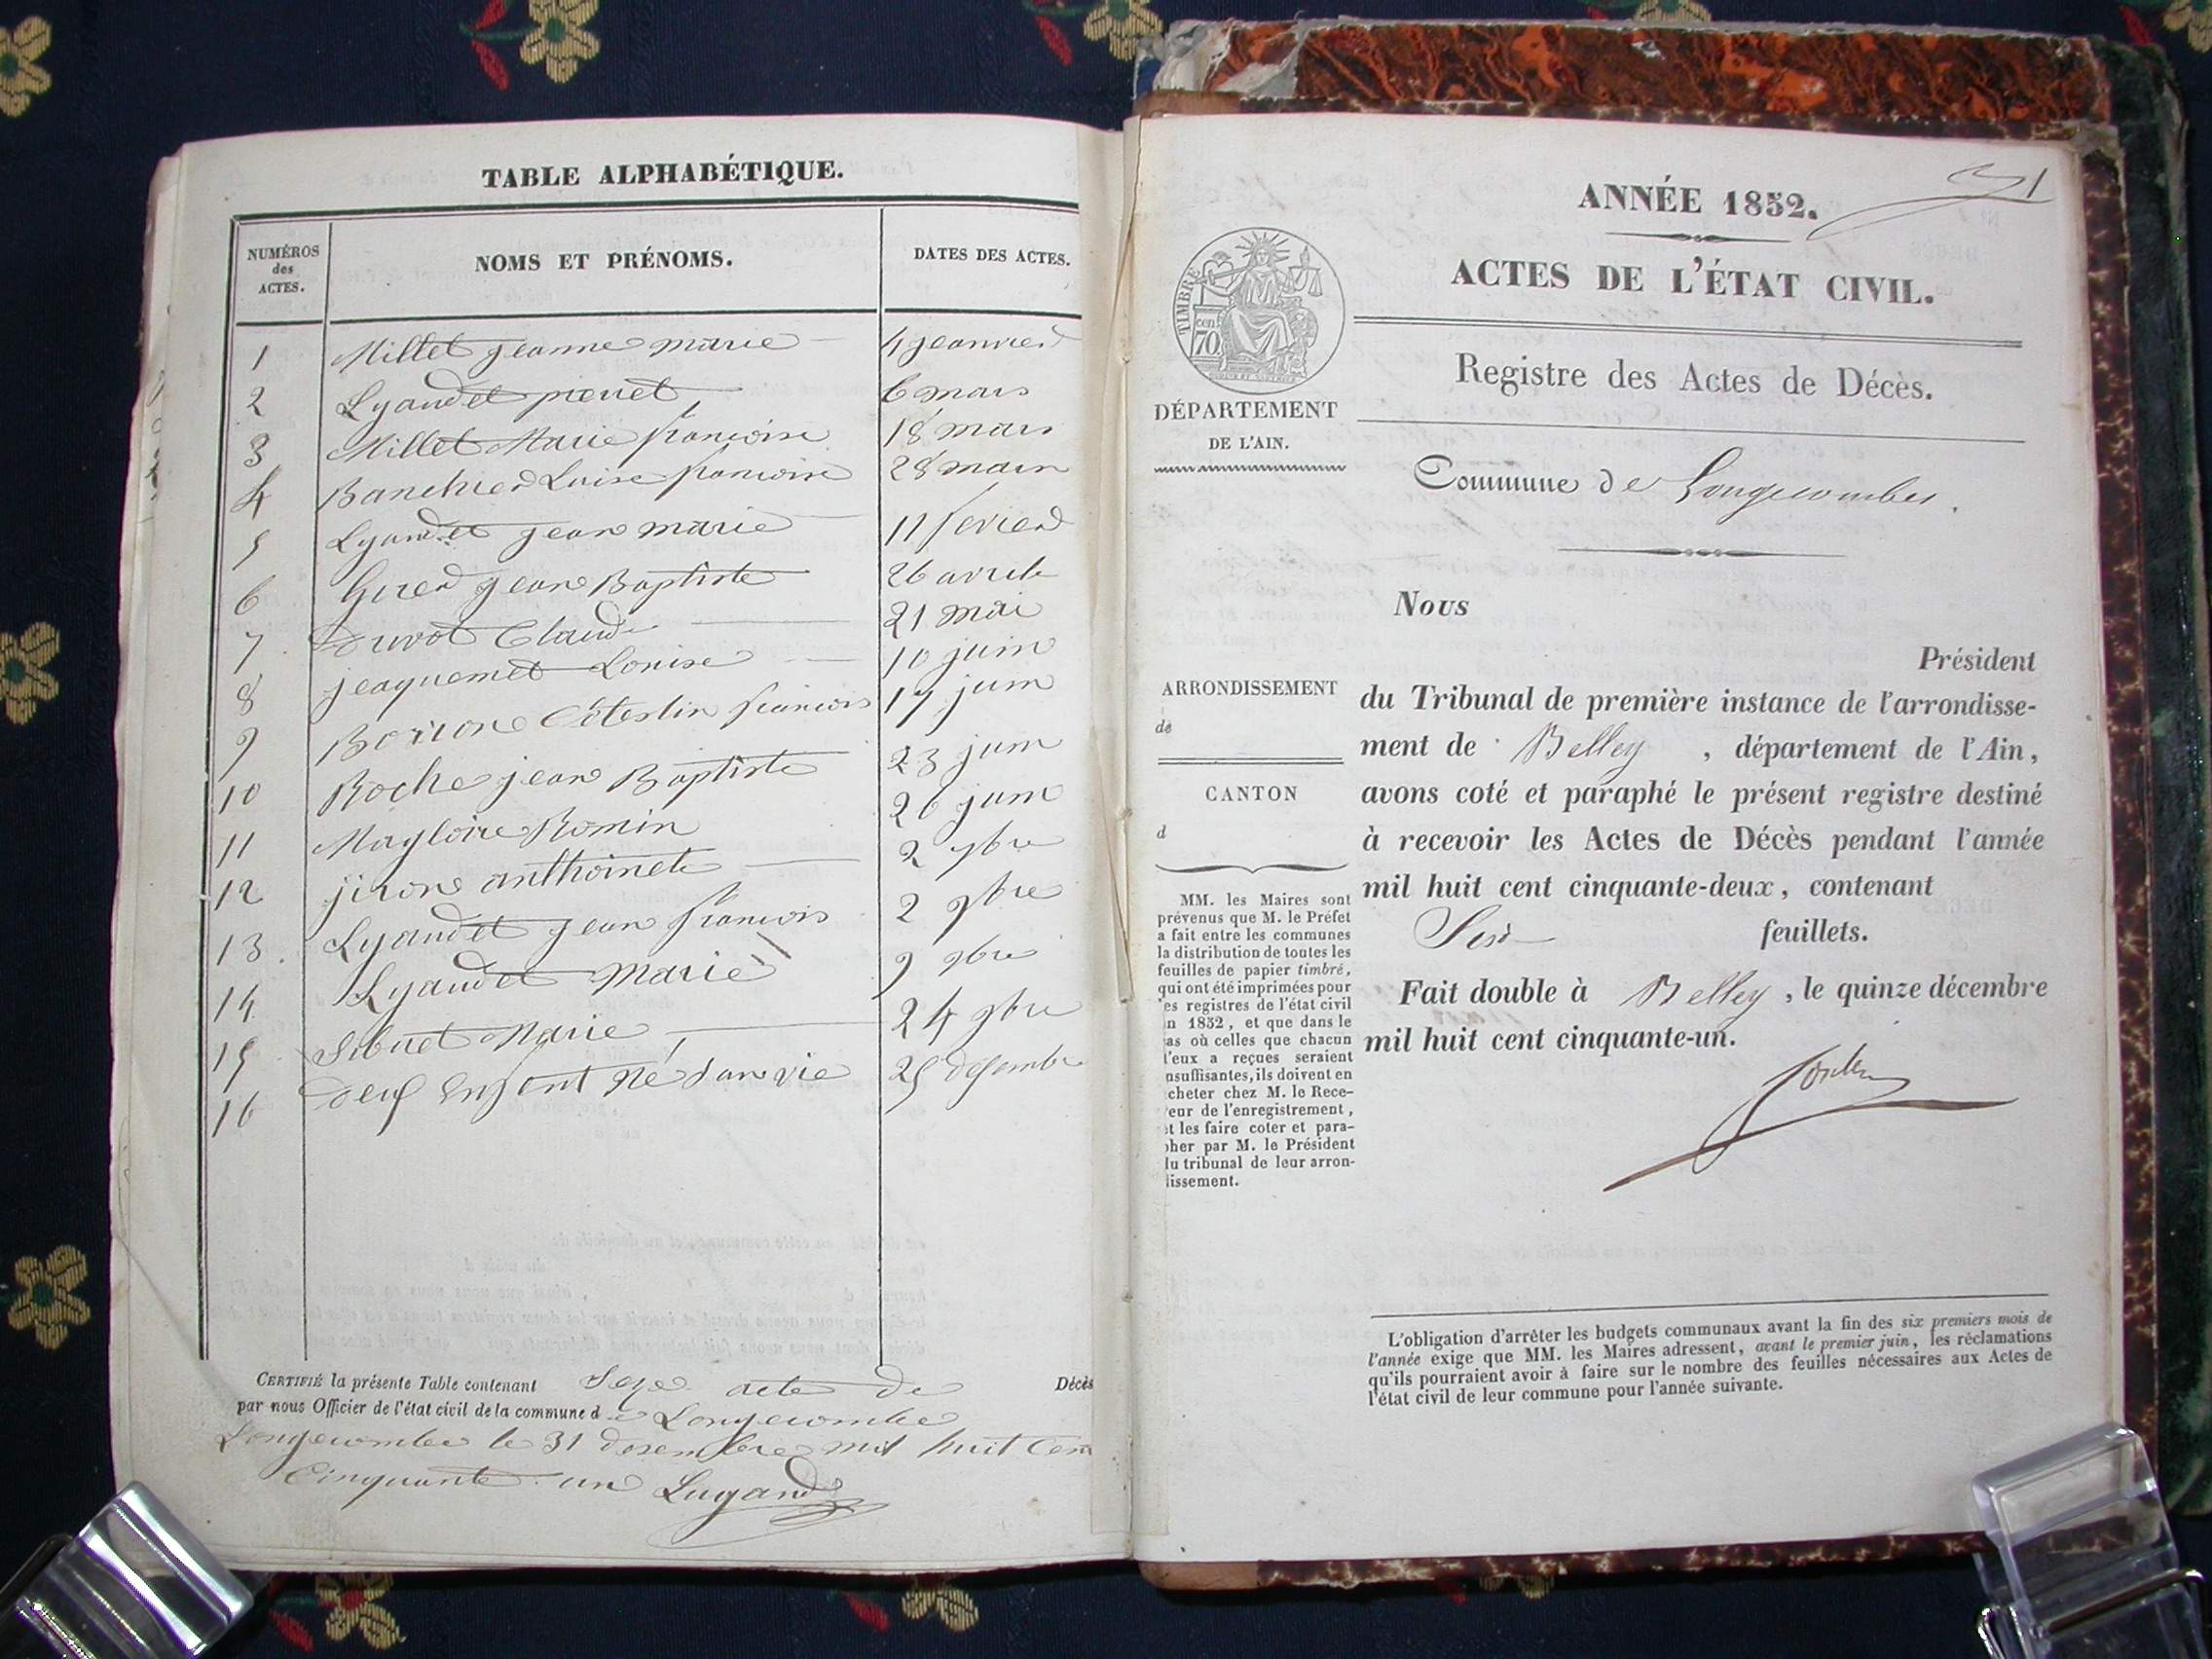 TABLE ALPHABÉTIQUE.
NUMÉROS
des
ACTES.
NOMS ET PRÉNOMS.
DATES DES ACTES.
1 Millet jeanne marie 4 jeanvier
2 Lyaudet pierret 6 mars
3 Millet Marie francoise 18 mars
4 Banchier Luise francoise 28 mars
5 Lyaudet jean marie 11 fevrier
6 Girer jean Baptiste 26 avrile
7 Duvot Claude 21 mai
8 jeaquemet Louise 10 juin
9 Borrone Celestin francois 17 juin
10 Roche jean Baptiste 23 juin
11 Magloire Romin 26 juin
12 jirone anthoinete 2 9bre
13 Lyaudet jean francois 2 9bre
14 Lyaudet Marie 9 9bre
15 Sibuet Marie 24 9bre
16 enfent né san vie 25 desembre
CERTIFIÉ la présente Table contenant Seze acte de Décès
par nous Officier de l'état civil de la commune de Longecombe
Longecombe le 31 desembre mil huit Cen
Cinquante un Lugand
31
ANNÉE 1852.
ACTES DE L'ÉTAT CIVIL.
TIMBRE
70 cent.
DÉPARTEMENT
DE L'AIN.
Registre des Actes de Décès.
Commune de Longecombe.
Nous
Président
du Tribunal de première instance de l'arrondisse-
ment de Belley, département de l'Ain,
avons coté et paraphé le présent registre destiné
à recevoir les Actes de Décès pendant l'année
mil huit cent cinquante-deux, contenant
Six feuillets.
Fait double à Belley, le quinze décembre
mil huit cent cinquante-un.
ARRONDISSEMENT
de
CANTON
d
MM. les Maires sont
prévenus que M. le Préfet
a fait entre les communes
la distribution de toutes les
feuilles de papier timbré,
qui ont été imprimées pour
es registres de l'état civil
n 1852, et que dans le
as où celles que chacun
l'eux a reçues seraient
nsuffisantes, ils doivent en
cheter chez M. le Rece-
eur de l'enregistrement,
t les faire coter et para-
pher par M. le Président
lu tribunal de leur arron-
lissement.
L'obligation d'arrêter les budgets communaux avant la fin des six premiers mois de
l'année exige que MM. les Maires adressent, avant le premier juin, les réclamations
qu'ils pourraient avoir à faire sur le nombre des feuilles nécessaires aux Actes de
l'état civil de leur commune pour l'année suivante.